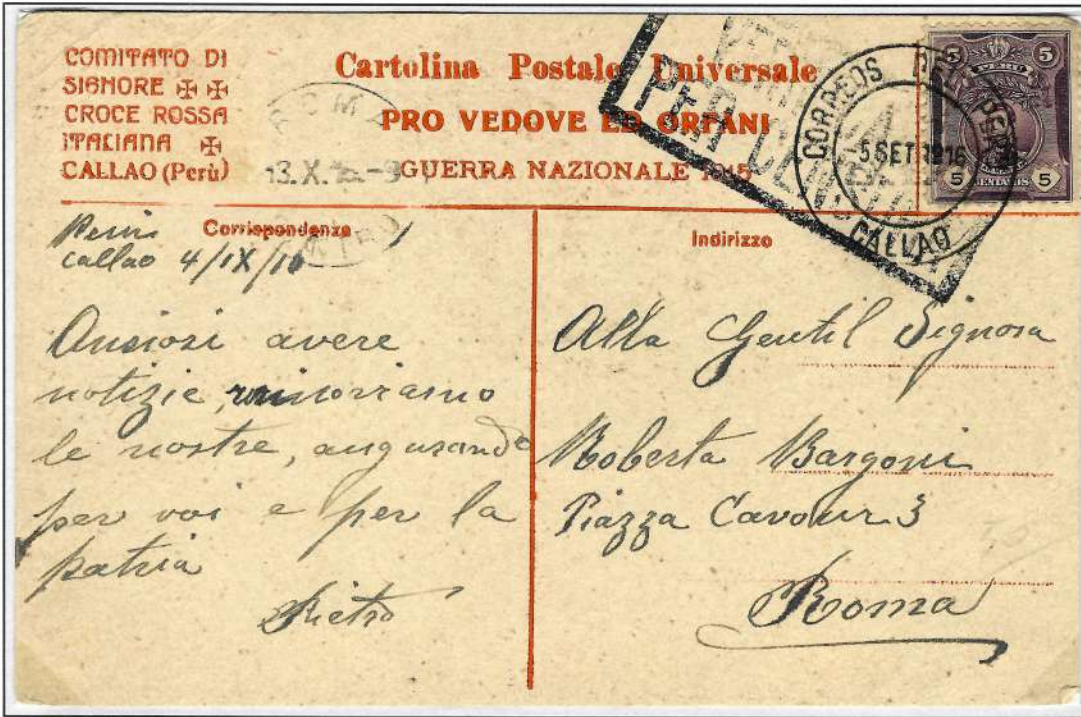 COMITATO DI
SIGNORE
CROCE ROSSA
ITALIANA
CALLAO (Perù)
Cartolina Postale Universale
PRO VEDOVE ED ORFANI
GUERRA NAZIONALE 1915
ROMA
13.X.
CENTRO
PER
CORREOS DEL PERU
5 SET 1916
CALLAO
5 5
PERU
5 CENTAVOS 5
Corrispondenza
Callao 4/IX/16
Ansiosi avere
notizie, rinnoviamo
le nostre, augurando
per voi e per la
patria
Pietro
Indirizzo
Alla Gentil Signora
Roberta Bargoni
Piazza Cavour 3
Roma